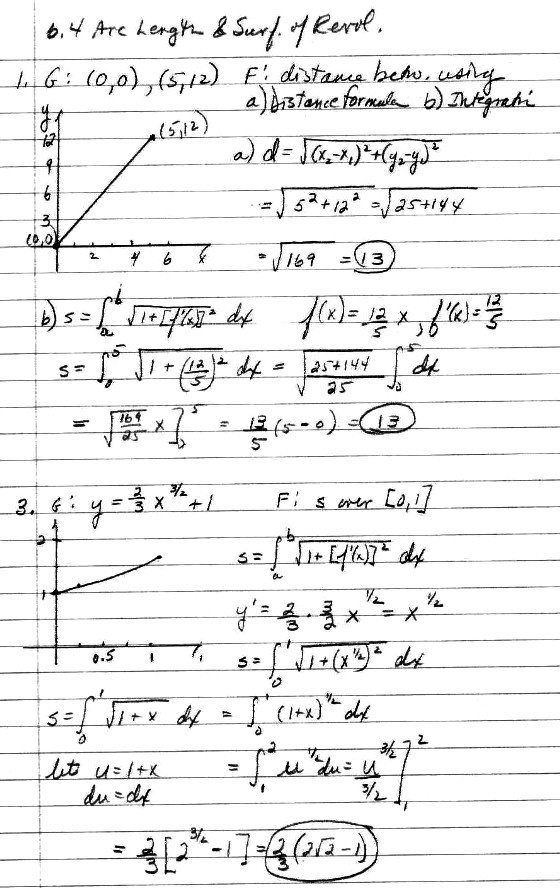 6.4 Arc Length & Surf. of Revol.
1. G: (0,0), (5,12) F: distance betw. using
a) Distance formula b) Integrati
y
(5,12)
12
9
6
3
(0,0)
2 4 6 x
a) d = √((x₂-x₁)²+(y₂-y₁)²)
= √(5²+12²) = √(25+144)
= √169 = 13
b) s = ∫ₐᵇ √(1+[f'(x)]²) dx f(x) = 12/5 x, f'(x) = 12/5
s = ∫₀⁵ √(1+(12/5)²) dx = √((25+144)/25) ∫₀⁵ dx
= √(169/25) x ]₀⁵ = 13/5 (5-0) = 13
3. G: y = 2/3 x^(3/2) + 1 F: s over [0,1]
2
1
0.5 1
s = ∫ₐᵇ √(1+[f'(x)]²) dx
y' = 2/3 · 3/2 x^(1/2) = x^(1/2)
s = ∫₀¹ √(1+(x^(1/2))²) dx
s = ∫₀¹ √(1+x) dx = ∫₀¹ (1+x)^(1/2) dx
let u = 1+x = ∫₁² u^(1/2) du = u^(3/2)/(3/2) ]₁²
du = dx
= 2/3 [2^(3/2) - 1] = 2/3 (2√2 - 1)